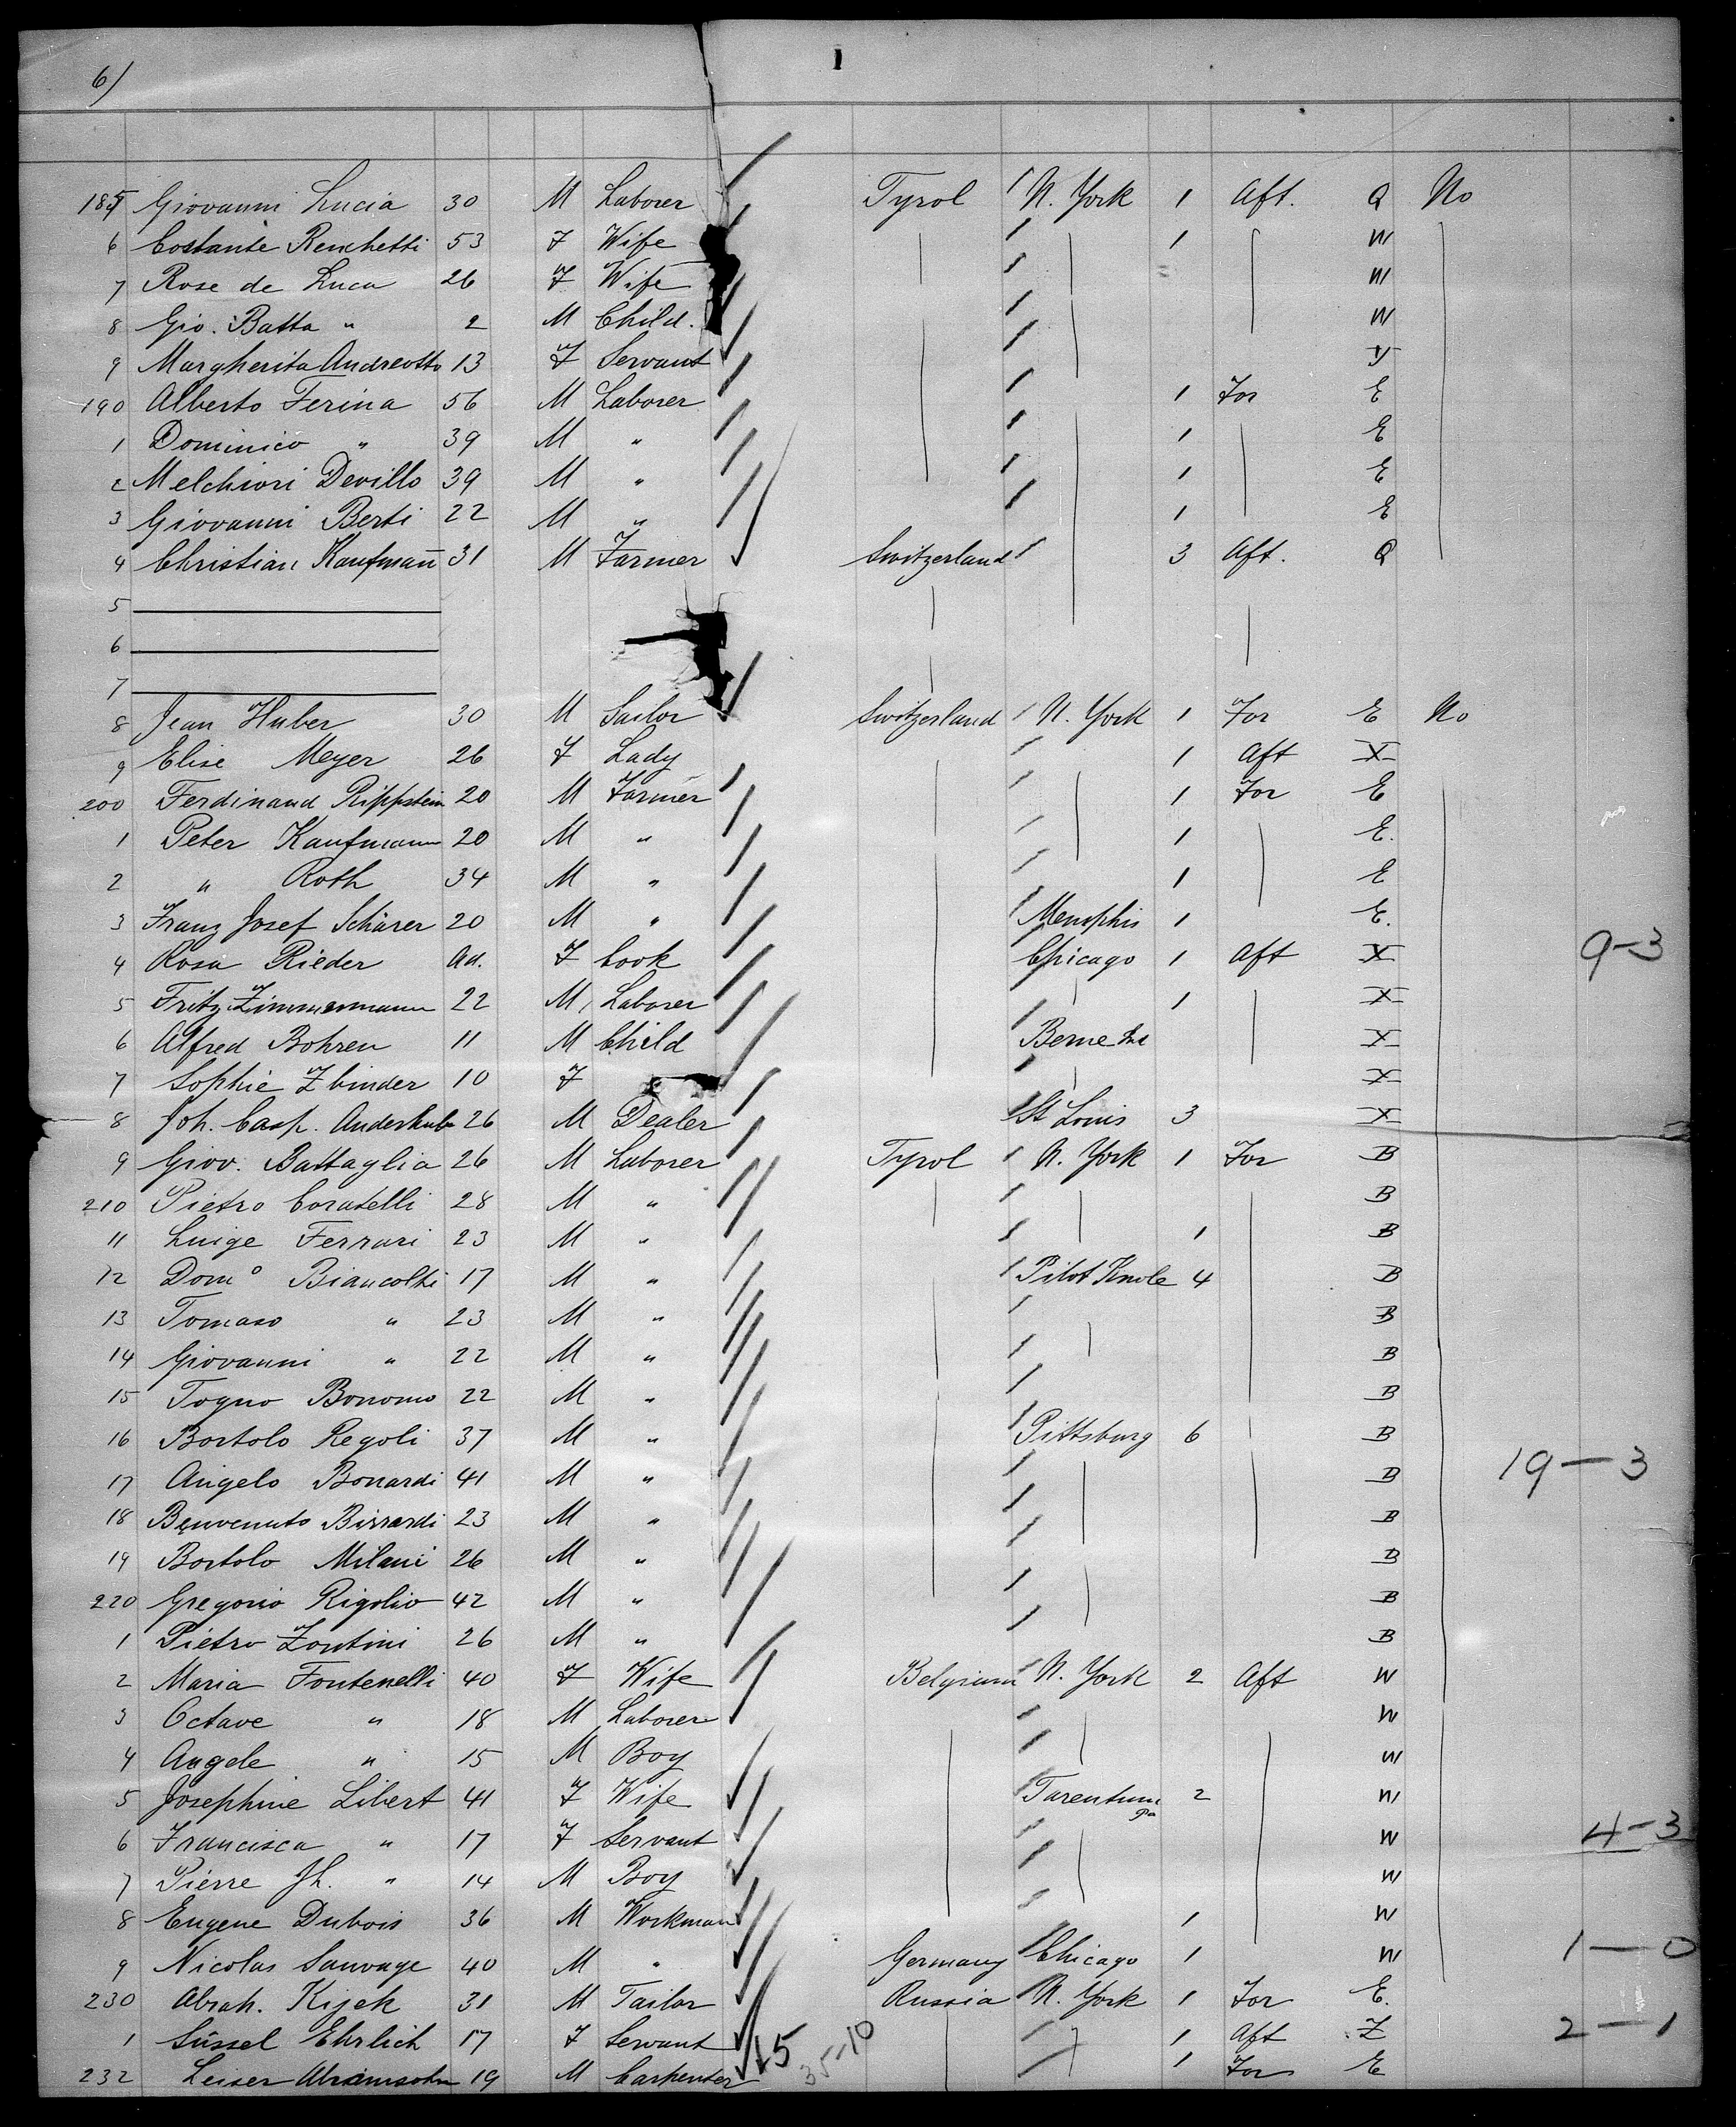 6/
185 Giovanni Lucia 30 M Laborer Tyrol N. York 1 Aft. Q No
6 Costante Renchetti 53 F Wife 1 W
7 Rose de Luca 26 F Wife W
8 Gio. Batta " 2 M Child. W
9 Margherita Andreotto 13 F Servant
190 Alberto Ferina 56 M Laborer 1 For E
1 Dominico " 39 M " 1 E
2 Melchiori Devillo 39 M " 1 E
3 Giovanni Berti 22 M " 1 E
4 Christian Kaufmann 31 M Farmer Switzerland 3 Aft. Q
5
6
7
8 Jean Huber 30 M Sailor Switzerland N. York 1 For E No
9 Elise Meyer 26 F Lady 1 Aft X
200 Ferdinand Rippstein 20 M Farmer 1 For E
1 Peter Kaufmann 20 M " 1 E.
2 " Roth 34 M " 1 E
3 Franz Josef Schärer 20 M " Memphis 1 E.
4 Rosa Rieder Ad. F Cook Chicago 1 Aft X 9-3
5 Fritz Zimmermann 22 M Laborer 1 X
6 Alfred Bohren 11 M Child Berne X
7 Sophie Zbinder 10 F X
8 Joh. Casp. 26 M Dealer St Louis 3 X
9 Giov. Battaglia 26 M Laborer Tyrol N. York 1 For B
210 Pietro Coratelli 28 M " B
11 Luige Ferrari 23 M " 1 B
12 Domo Biancolti 17 M " Pilot Knole 4 B
13 Tomaso " 23 M " B
14 Giovanni " 22 M " B
15 Togno Bonomo 22 M " B
16 Bortolo Regoli 37 M " Pittsburg 6 B
17 Angelo Bonardi 41 M " B 19-3
18 Benvenuto Bizzardi 23 M " B
19 Bortolo Milani 26 M " B
220 Gregorio Rigolio 42 M " B
1 Pietro Zontini 26 M " B
2 Maria Fontenelli 40 F Wife Belgium N. York 2 Aft W
3 Octave " 18 M Laborer W
4 Angele " 15 M Boy W
5 Josephine Libert 41 F Wife Tarentum Pa 2 W
6 Francisca " 17 F Servant W 4-3
7 Pierre Jh. " 14 M Boy W
8 Eugene Dubois 36 M Workman 1 W
9 Nicolas Sauvage 40 M " Germany Chicago 1 W 1-0
230 Abrah. Kijek 31 M Tailor Russia N. York 1 For E.
1 Süssel Ehrlich 17 F Servant 1 Aft Z 2-1
232 Leiser Abramsohn 19 M Carpenter 15 35-10 1 For E